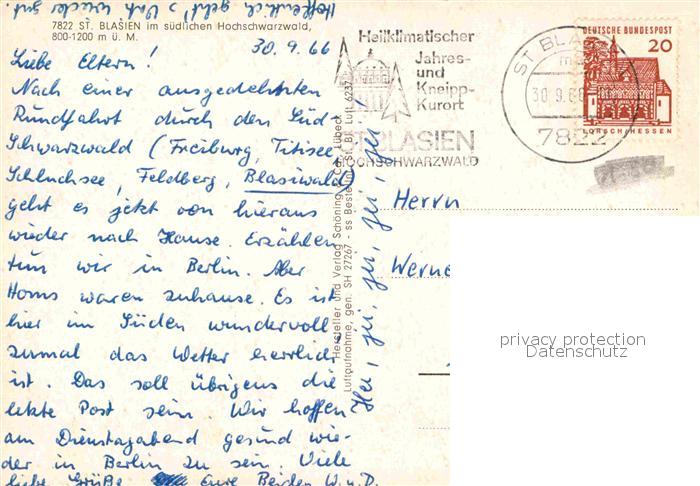 Hoffentlich geht's Vati wieder gut.
7822 ST. BLASIEN im südlichen Hochschwarzwald,
800-1200 m ü. M.
30. 9. 66
Liebe Eltern!
Nach einer ausgedehnten
Rundfahrt durch den Süd-
Schwarzwald (Freiburg, Titisee,
Schluchsee, Feldberg, Blasiwald)
geht es jetzt von hieraus
wieder nach Hause. Erzählen
tun wir in Berlin. Aber
Homs waren zuhause. Es ist
hier im Süden wundervoll,
zumal das Wetter herrlich
ist. Das soll übrigens die
letzte Post sein. Wir hoffen
am Dienstagabend gesund wie-
der in Berlin zu sein. Viele
liebe Grüße Eure Beiden W. u. D.
Heilklimatischer
Jahres-
und
Kneipp-
Kurort
ST. BLASIEN
HOCHSCHWARZWALD
ST BLAS
30.9.66
7822
DEUTSCHE BUNDESPOST
20
LORSCH/HESSEN
Hersteller und Verlag Schöning & Co., Lübeck
Luftaufnahme, gen. SH 27267 - ss Bestell-Nr. St. Bl. Luft 6237
Herrn
Werne
privacy protection
Datenschutz